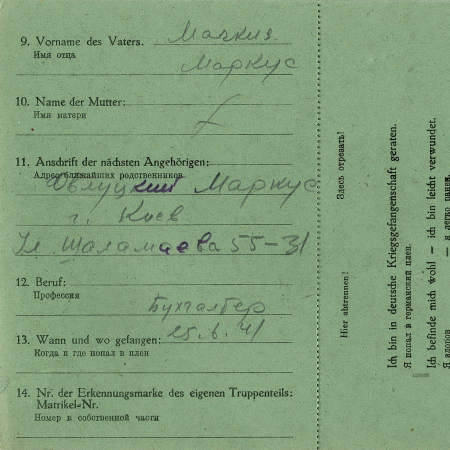 9. Vorname des Vaters.
Имя отца
Маркус
10. Name der Mutter:
Имя матери
11. Anschrift der nächsten Angehörigen:
Адрес ближайших родственников
Маркус
г. Киев
Ул. 55-31
12. Beruf:
Профессия
Бухгалтер
13. Wann und wo gefangen: 25.6.41
Когда и где попал в плен
14. Nr. der Erkennungsmarke des eigenen Truppenteils:
Matrikel-Nr.
Номер в собственной части
Hier abtrennen! Здесь отрезать!
Ich bin in deutsche Kriegsgefangenschaft geraten.
Я попал в германский плен.
Ich befinde mich wohl – ich bin leicht verwundet.
Я здоров – я легко ранен.